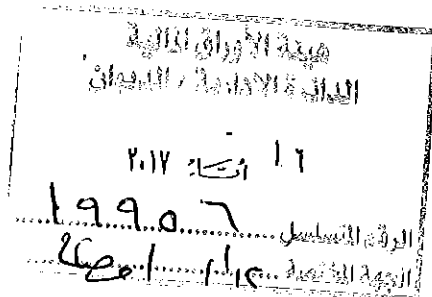 هيئة الأوراق المالية
الدائرة الادارية / الديوان
١٦ ٢٠١٧
الرقم المتسلسل ١٩٩٥٦
الجهة المختصة